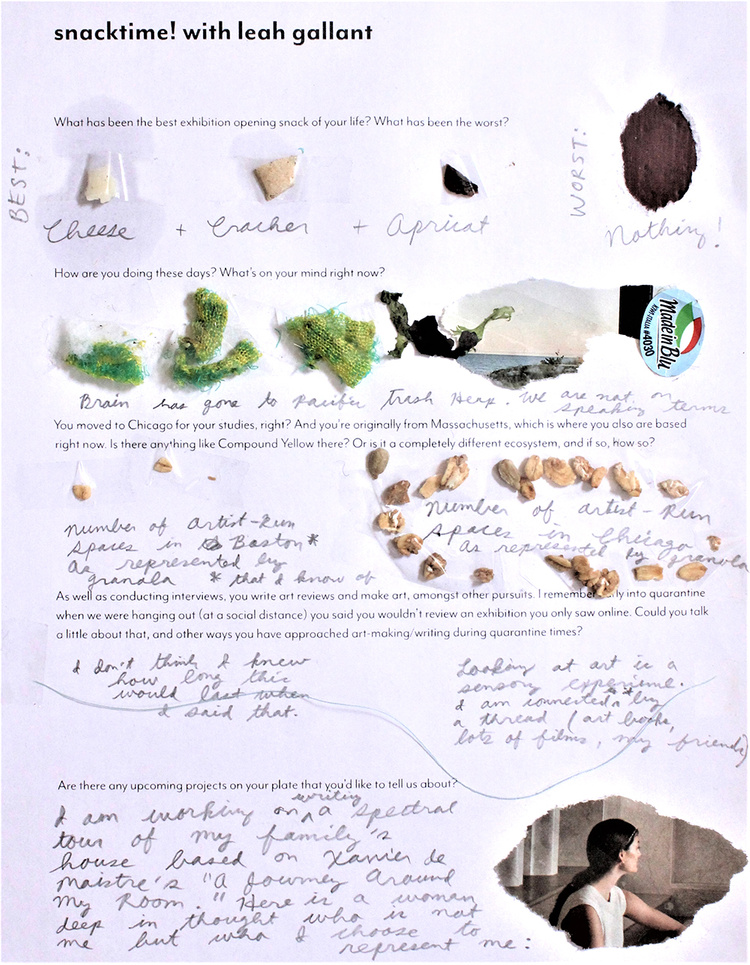 snacktime! with leah gallant
What has been the best exhibition opening snack of your life? What has been the worst?
BEST:
Cheese + Cracker + Apricat
WORST:
Nothing!
How are you doing these days? What's on your mind right now?
Made in Blu
KIWI ITALIA #4030
Brain has gone to Pacific Trash Heap. We are not on
speaking terms
You moved to Chicago for your studies, right? And you're originally from Massachusetts, which is where you also are based
right now. Is there anything like Compound Yellow there? Or is it a completely different ecosystem, and if so, how so?
number of artist-run
spaces in Boston*
as represented by
granola * that I know of
number of artist-run
spaces in Chicago
as represented by granola
As well as conducting interviews, you write art reviews and make art, amongst other pursuits. I remember early into quarantine
when we were hanging out (at a social distance) you said you wouldn't review an exhibition you only saw online. Could you talk
a little about that, and other ways you have approached art-making/writing during quarantine times?
I don't think I knew
how long this
would last when
I said that.
Looking at art is a
sensory experience.
I am connected by
a thread (art books,
lots of films, my friends)
Are there any upcoming projects on your plate that you'd like to tell us about?
I am working on writing a spectral
tour of my family's
house based on Xavier de
Maistre's "A Journey Around
My Room." Here is a woman
deep in thought who is not
me but who I choose to
represent me: